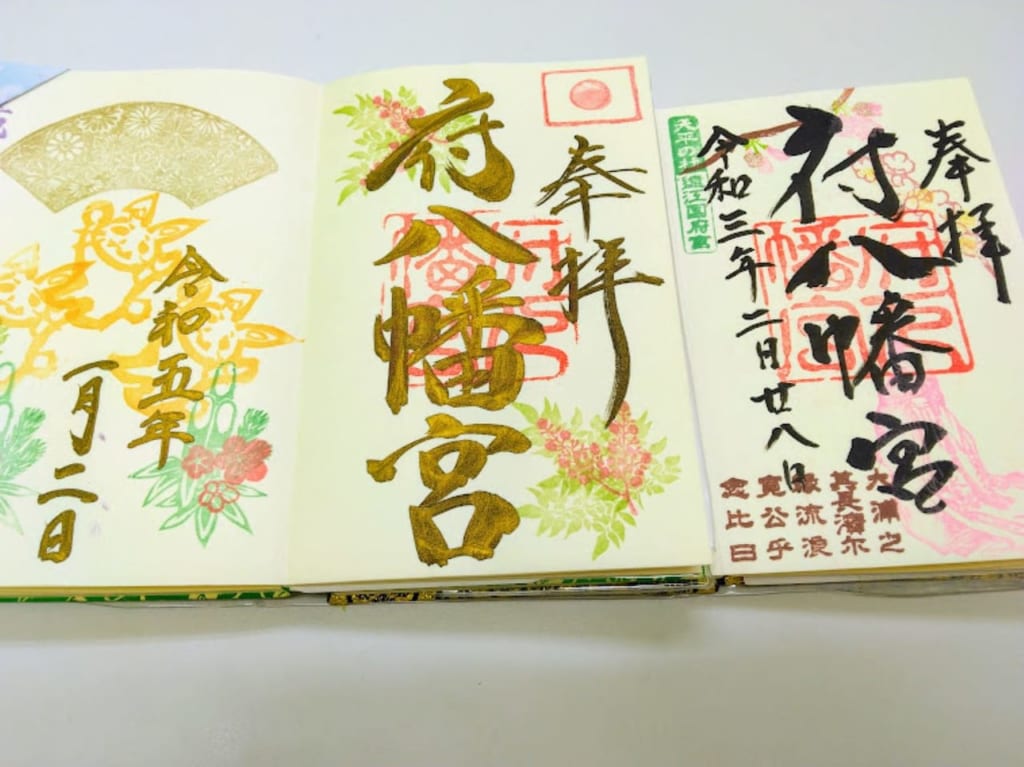 奉拝
府八幡宮
令和五年
一月二日
奉拝
府八幡宮
令和三年二月廿八日
天平の杜遠江国府宮
大浦之
其長濱尓
縁流浪
寛公乎
念比日
府八幡宮
府八幡宮